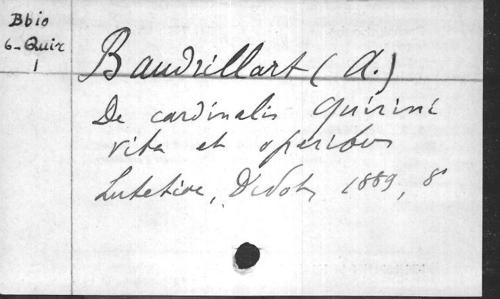 Bbio
6-Quir
1
Baudrillart (A.)
De cardinalis Quirini
vita et operibus
Lutetiae, Didot, 1889, 8°